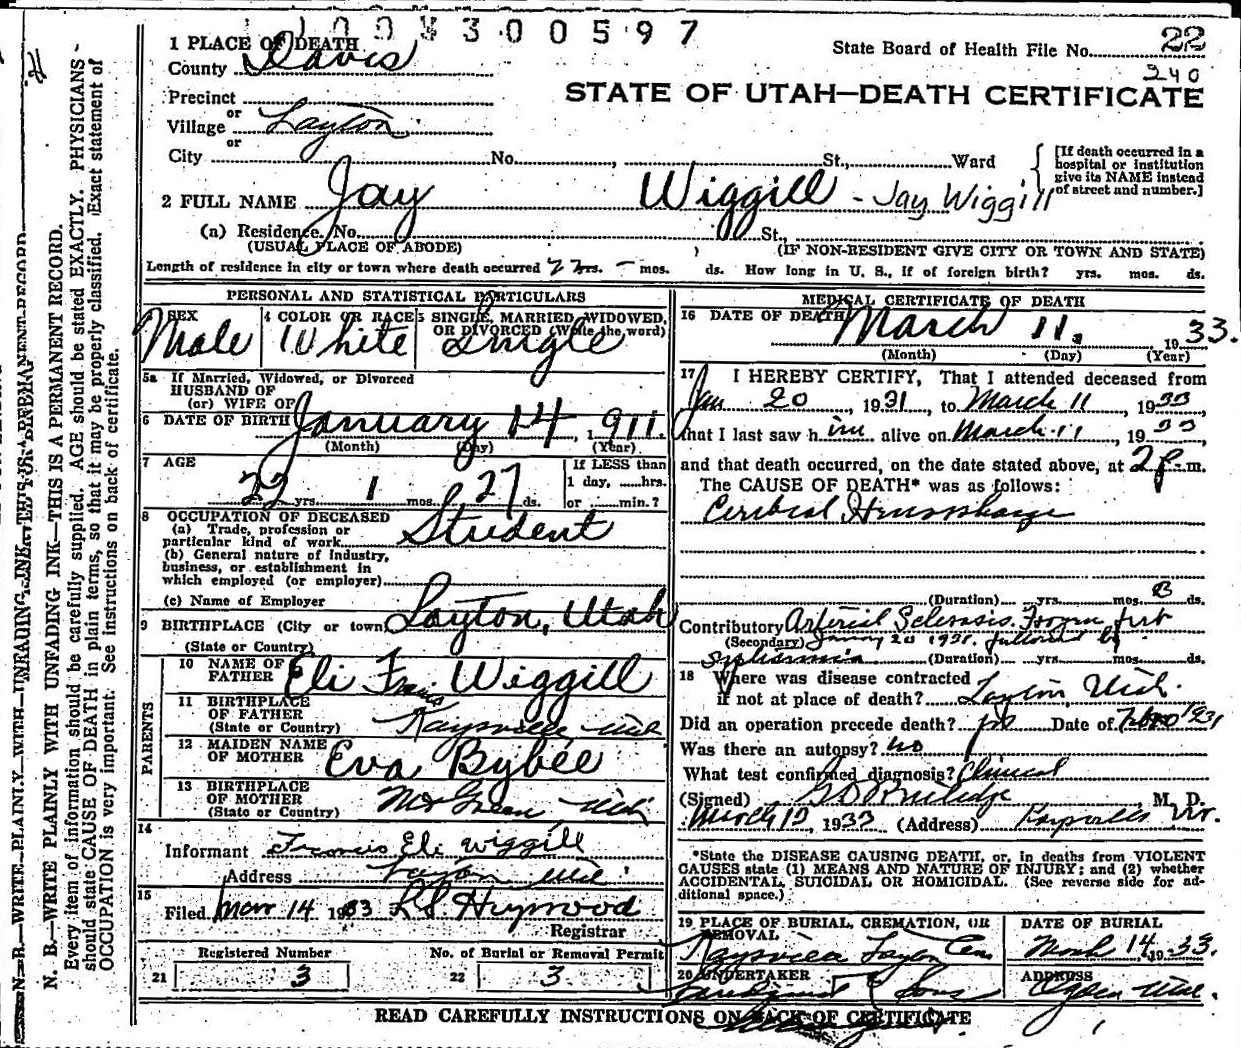 300597
1 PLACE OF DEATH
State Board of Health File No. 22
240
County Davis
STATE OF UTAH—DEATH CERTIFICATE
Precinct
or
Village Layton
or
City No. St., Ward
[If death occurred in a
hospital or institution
give its NAME instead
of street and number.]
2 FULL NAME Jay Wiggill - Jay Wiggill
(a) Residence. No. St.,
(USUAL PLACE OF ABODE) (IF NON-RESIDENT GIVE CITY OR TOWN AND STATE)
Length of residence in city or town where death occurred 22 yrs. - mos. ds. How long in U. S., if of foreign birth? yrs. mos. ds.
PERSONAL AND STATISTICAL PARTICULARS
SEX Male
4 COLOR OR RACE White
5 SINGLE, MARRIED, WIDOWED,
OR DIVORCED (Write the word) Single
5a If Married, Widowed, or Divorced
HUSBAND OF
(or) WIFE OF
6 DATE OF BIRTH January 14, 1911.
(Month) (Day) (Year)
7 AGE
22 yrs. 1 mos. 27 ds.
If LESS than
1 day, ......hrs.
or ......min.?
8 OCCUPATION OF DECEASED
(a) Trade, profession or
particular kind of work Student
(b) General nature of industry,
business, or establishment in
which employed (or employer)
(c) Name of Employer
9 BIRTHPLACE (City or town) Layton, Utah
(State or Country)
PARENTS
10 NAME OF
FATHER Eli Francis Wiggill
11 BIRTHPLACE
OF FATHER
(State or Country) Kaysville Utah
12 MAIDEN NAME
OF MOTHER Eva Bybee
13 BIRTHPLACE
OF MOTHER
(State or Country)
14
Informant Francis Eli Wiggill
Address Layton Utah
15
Filed Mar 14 1933 L.S. Heywood
Registrar
Registered Number
21 3
No. of Burial or Removal Permit
22 3
MEDICAL CERTIFICATE OF DEATH
16 DATE OF DEATH March 11, 1933.
(Month) (Day) (Year)
17 I HEREBY CERTIFY, That I attended deceased from
Jan 20, 1931, to March 11, 1933,
that I last saw him alive on March 11, 1933,
and that death occurred, on the date stated above, at 2 p.m.
The CAUSE OF DEATH* was as follows:
Cerebral Hemorrhage
(Duration) yrs. mos. ds.
Contributory Arterial Sclerosis.
(Secondary) followed by
(Duration) yrs. mos. ds.
18 Where was disease contracted
if not at place of death? Layton, Utah.
Did an operation precede death? Date of 1931
Was there an autopsy? no
What test confirmed diagnosis? Clinical
(Signed) M. D.
March 13, 1933 (Address) Kaysville Ut.
*State the DISEASE CAUSING DEATH, or, in deaths from VIOLENT
CAUSES state (1) MEANS AND NATURE OF INJURY; and (2) whether
ACCIDENTAL, SUICIDAL OR HOMICIDAL. (See reverse side for ad-
ditional space.)
19 PLACE OF BURIAL, CREMATION, OR
REMOVAL
Kaysville Layton Cem
DATE OF BURIAL
March 14, 1933.
20 UNDERTAKER
& Sons
ADDRESS
Ogden Utah.
READ CAREFULLY INSTRUCTIONS ON BACK OF CERTIFICATE
N. B.—WRITE PLAINLY WITH UNFADING INK—THIS IS A PERMANENT RECORD.
Every item of information should be carefully supplied. AGE should be stated EXACTLY. PHYSICIANS
should state CAUSE OF DEATH in plain terms, so that it may be properly classified. Exact statement of
OCCUPATION is very important. See instructions on back of certificate.